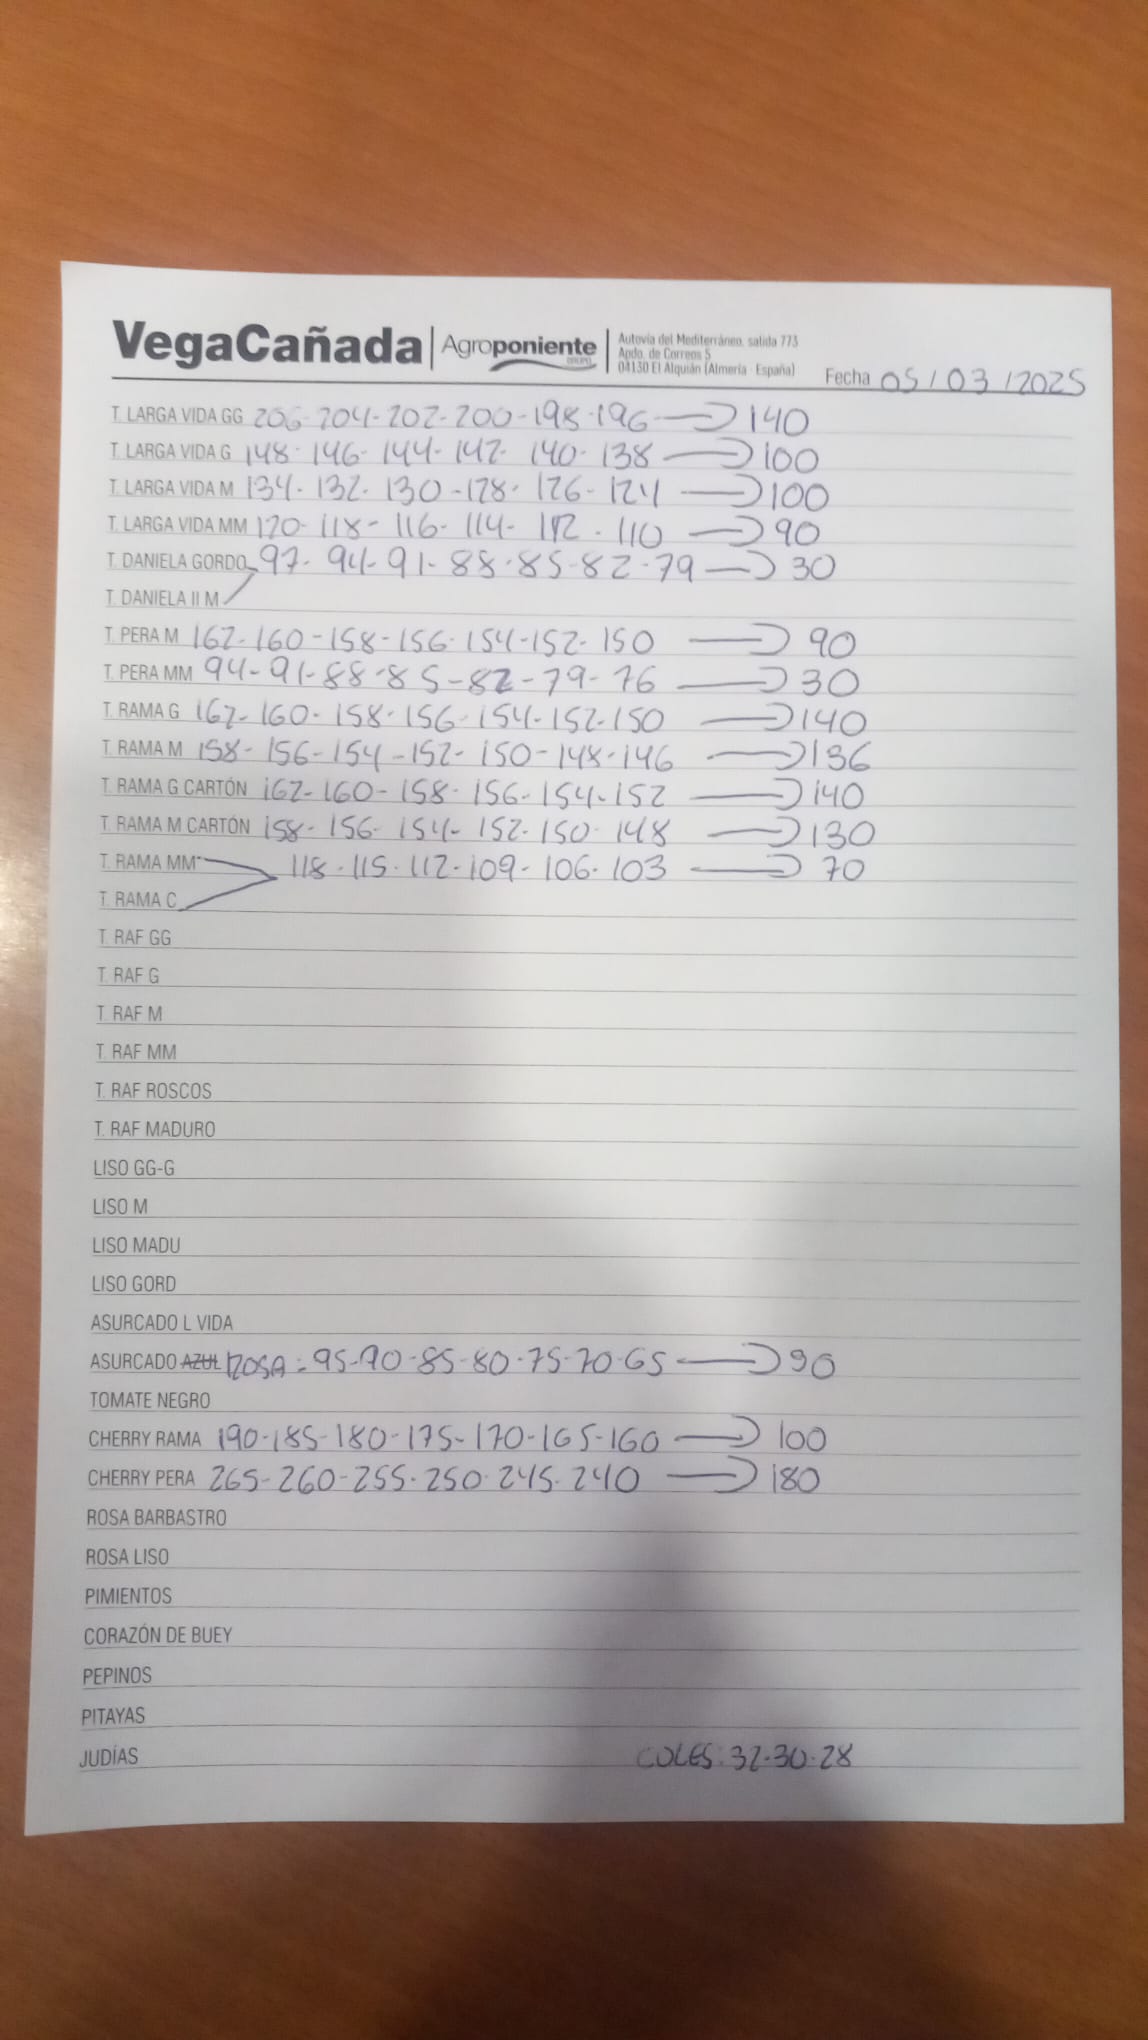 VegaCañada Agroponiente GRUPO
Autovía del Mediterráneo, salida 773
Apdo. de Correos 5
04130 El Alquián (Almería - España)
Fecha 05/03/2025
T. LARGA VIDA GG 206-204-202-200-198-196 → 140
T. LARGA VIDA G 148-146-144-142-140-138 → 100
T. LARGA VIDA M 134-132-130-128-126-124 → 100
T. LARGA VIDA MM 120-118-116-114-112-110 → 90
T. DANIELA GORDO 97-94-91-88-85-82-79 → 30
T. DANIELA II M
T. PERA M 162-160-158-156-154-152-150 → 90
T. PERA MM 94-91-88-85-82-79-76 → 30
T. RAMA G 162-160-158-156-154-152-150 → 140
T. RAMA M 158-156-154-152-150-148-146 → 136
T. RAMA G CARTÓN 162-160-158-156-154-152 → 140
T. RAMA M CARTÓN 158-156-154-152-150-148 → 130
T. RAMA MM 118-115-112-109-106-103 → 70
T. RAMA C
T. RAF GG
T. RAF G
T. RAF M
T. RAF MM
T. RAF ROSCOS
T. RAF MADURO
LISO GG-G
LISO M
LISO MADU
LISO GORD
ASURCADO L VIDA
ASURCADO AZUL ROSA: 95-90-85-80-75-70-65 → 90
TOMATE NEGRO
CHERRY RAMA 190-185-180-175-170-165-160 → 100
CHERRY PERA 265-260-255-250-245-240 → 180
ROSA BARBASTRO
ROSA LISO
PIMIENTOS
CORAZÓN DE BUEY
PEPINOS
PITAYAS
JUDÍAS COLES: 32-30-28